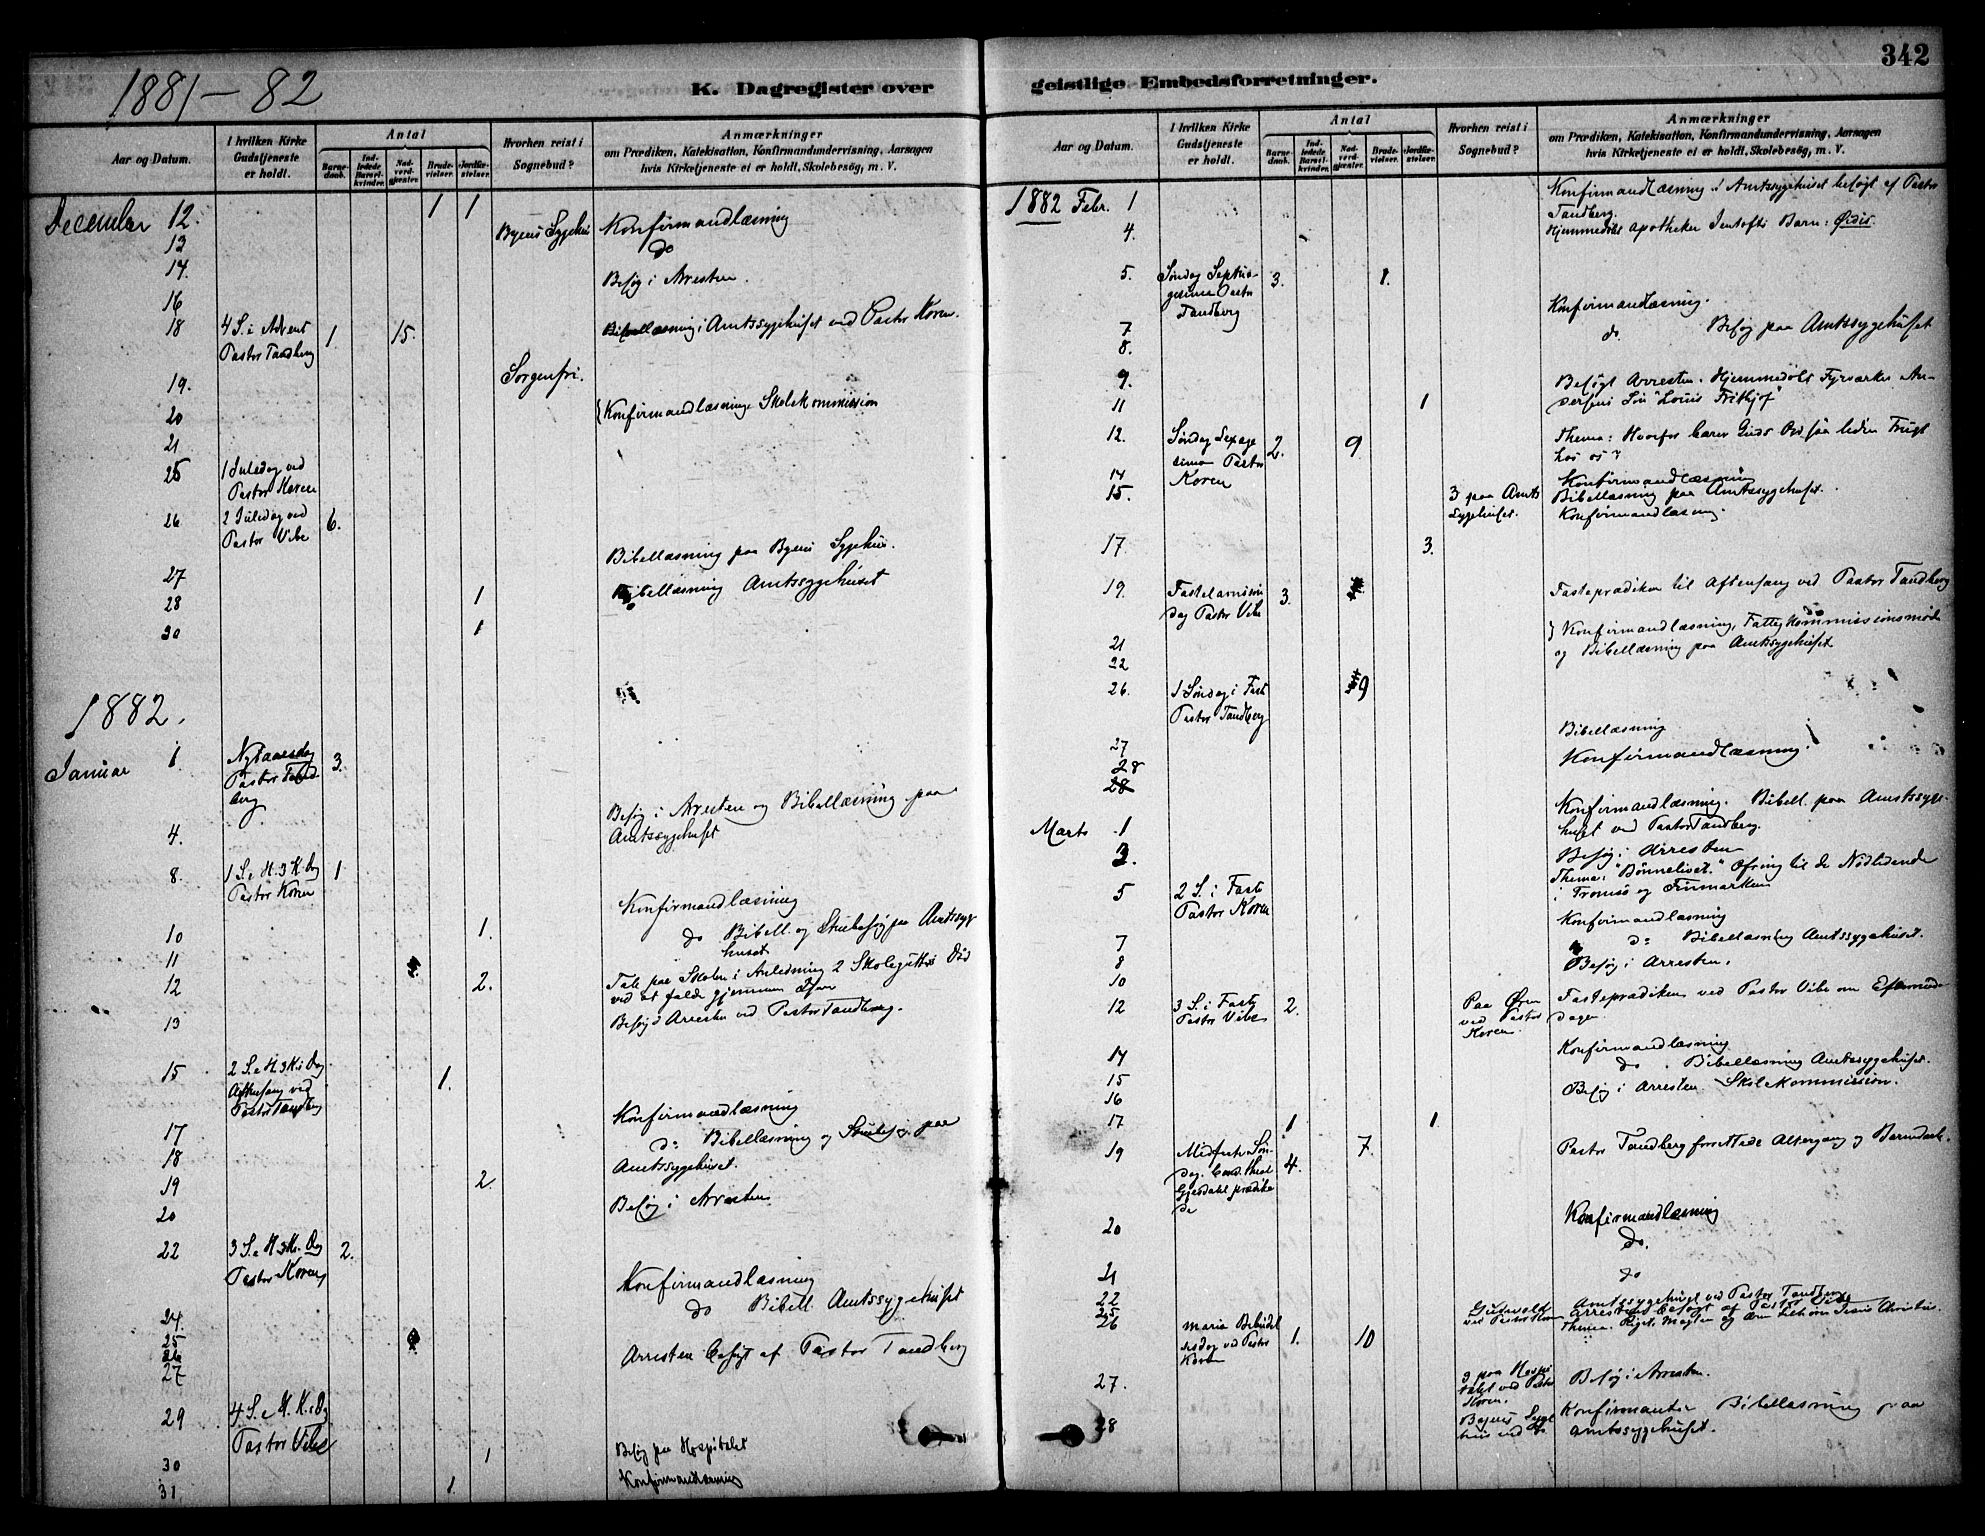 1881 – 82
K. Dagregister over
Aar og Datum.
I hvilken Kirke
Gudstjeneste
er holdt.
Antal
Barne-
daab.
Ind-
ledede
Barsel-
kvinder.
Nad-
verd-
gjester.
Brude-
vielser.
Jordfæ-
stelser.
Hvorhen reist i
Sognebud?
Anmærkninger
om Prædiken, Katekisation, Konfirmandundervisning, Aarsagen
hvis Kirketjeneste ei er holdt, Skolebesøg, m. V.
December 12. 1 1
Byens Sygehus Konfirmandlæsning
13 do
14. Besøg i Arresten.
16
18 4 S. i Advent 1 15. Bibellæsning i Amtssygehuset ved Pastor Koren.
Pastor Tandberg
19. Sorgenfri.
20 Konfirmandlæsning Skolekommission
21
25 1 Juledag ved
Pastor Koren
26 2 Juledag ved 6.
Pastor Vibe
Bibellæsning paa Byens Sygehus.
27 Bibellæsning Amtssygehuset
28 1
30 1
1882.
Januar 1. Nytaarsdag 3.
Pastor Tand
berg
Besøg i Arresten og Bibellæsning paa
4. Amtssygehuset
8. 1 S. e. H. 3 K. Dag 1
Pastor Koren
Konfirmandlæsning
10 1. do Bibell. og Stuebesøg paa Amtssyge
huset
11
12 2. Tale paa Skolen i Anledning 2 Skolegutters Død
ved at falde gjennem Isen
13 Besøg i Arresten ved Pastor Tandberg.
15 2 S. e. H. 3 K. Dag 1.
Aftensang ved
Pastor Tandberg
Konfirmandlæsning
17 do Bibellæsning og Stuebesøg paa
18 Amtssygehuset.
19 2.
20 Besøg i Arresten
22 3 S. e. H. 3 K. Dag 2.
Pastor Koren
Konfirmandlæsning
24. do Bibell. Amtssygehuset
25
26 Arresten besøgt af Pastor Tandberg
27
29 4 S. e. H. 3 K. Dag
Pastor Vibe
30 1 Besøg paa Hospitalet
31 1. Konfirmandlæsning
342
geistlige Embedsforretninger.
Aar og Datum.
I hvilken Kirke
Gudstjeneste
er holdt.
Antal
Barne-
daab.
Ind-
ledede
Barsel-
kvinder.
Nad-
verd-
gjester.
Brude-
vielser.
Jordfæ-
stelser.
Hvorhen reist i
Sognebud?
Anmærkninger
om Prædiken, Katekisation, Konfirmandundervisning, Aarsagen
hvis Kirketjeneste ei er holdt, Skolebesøg, m. V.
1882 Febr. 1 Konfirmandlæsning. Amtssygehuset besøgt af Pastor
Tandberg.
4. Hjemmedøbt Apotheker Jentofts Barn:
5. Søndag Septua- 3. 1.
gesima Pastor
Tandberg
Konfirmandlæsning.
7 do. Besøg paa Amtssygehuset
8.
9. Besøgt Arresten. Hjemmedøbt Fyrværker An-
11 1 dersens Søn "Louis Fritjof"
12. Søndag Sexage 2. 9 Thema: Hvorfor bærer Guds Ord saa liden Frugt
sima Pastor hos os?
14 Koren Konfirmandlæsning
15. 3 paa Amts Bibellæsning paa Amtssygehuset.
Sygehuset. Konfirmandlæsning.
17 3.
19. Fastelavnssøn 3. Fasteprædiken til Aftensang ved Pastor Tandberg
dag Pastor Vibe
21 Konfirmandlæsning, Fattigkommissionsmøde
22 og Bibellæsning paa Amtssygehuset
26. 1 Søndag i Fast 9
Pastor Tandberg
27 Bibellæsning
28 Konfirmandlæsning.
28
Marts 1 Konfirmandlæsning. Bibell. paa Amtssyge-
huset ved Pastor Tandberg.
3. Besøg i Arresten
5 2 S. i Faste Thema: "Bønnelivet." Ofring til de Nødlidende
Pastor Koren i Tromsø og Finmarken
7 Konfirmandlæsning
8 do Bibellæsning Amtssygehuset.
10 Besøg i Arresten.
12 3 S. i Faste 2. Paa Øren Fasteprædiken ved Pastor Vibe om
Pastor Vibe ved Pastor
Koren.
14 Konfirmandlæsning
15 do. Bibellæsning Amtssygehuset.
16 Besøg i Arresten. Skolekommission.
17 1 1.
19 Midfaste Søn- 4. 7. Pastor Tandberg forrettede Altergang og Barnedaab.
dag. Cand. theol.
Gjesdahl prædike
de
20 Konfirmandlæsning
do.
21 do
22 Amtssygehuset ved Pastor Tandberg
25 Arresten besøgt af Pastor Vibe
26 Maria Bebudel 1. 10 ved Pastor Koren Thema: Riget, Magten og Æren tilhører Jesus Christus.
sesdag ved Pastor
Koren
27. 3 paa Hospi Besøg i Arresten.
talet ved Pastor
Koren.
28 Byens Syge Konfirmanter Bibellæsning paa
hus ved do Amtssygehuset.